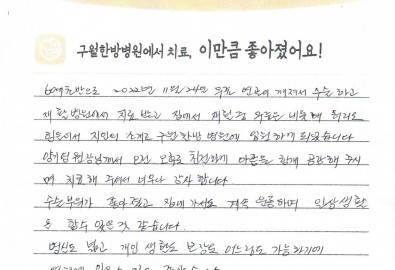 구월한방병원에서 치료, 이만큼 좋아졌어요!
60대 초반으로 2022년 11월 24일 무릎 연골이 깨져서 수술 하고
재활병원에서 치료 받고 집에서 재활 중 외로는 내용 때 무리도
힘들어서 지인의 소개로 구월한방 병원에 입원하게 되었습니다
원장님께서 오전 오후로 친절하게 아픔을 함께 공감해 주시
며 치료해 주셔서 너무나 감사 합니다.
수술부위가 좋아졌고 집에 가서도 계속 운동하며 일상생활
을 할수 있을것 같습니다.
병실도 넓고 개인 생활도 보장도 어느정도 가능하기에